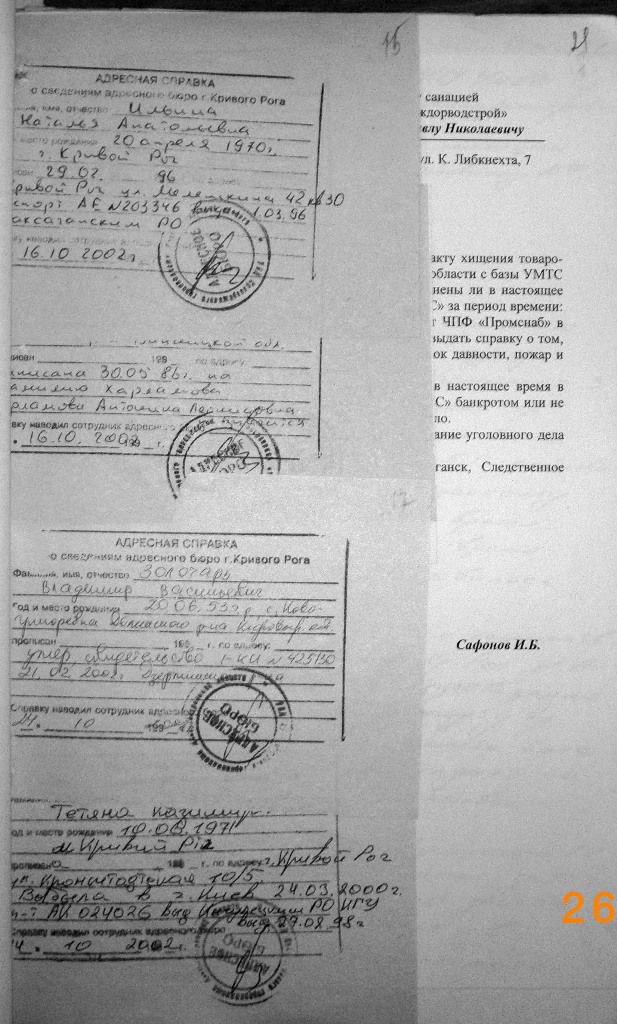 15
21
АДРЕСНАЯ СПРАВКА
о сведениям адресного бюро г.Кривого Рога
имя, отчество Ильина
Наталья Анатольевна
место рождения 20 апреля 1970г.
г. Кривой Рог
29.02. 96
Кривой Рог ул. Мелешкина 42 кв 30
паспорт АЕ N203346 выдан 1.03.96
Саксаганским РО
наводил сотрудник
16.10 2002г.
АДРЕСНОЕ БЮРО
обл.
199 г. по адресу:
30.05.86г. на
фамилию Харламова
Харламова Антонина Леонидовна
справку наводил сотрудник адресного
16.10. 2002
17
АДРЕСНАЯ СПРАВКА
о сведениям адресного бюро г.Кривого Рога
Фамилия, имя, отчество Золотарь
Владимир Васильевич
Год и место рождения 20.06.53г. с. Ново-
прописан 199 г. по адресу:
умер свидетельство 1-КИ N 425130
21.02.2002г.
Справку наводил сотрудник адресного бюро
24. 10
АДРЕСНОЕ БЮРО
Тетяна
год и место рождения 1971
м. Кривий Ріг
199 г. по адресу г. Кривой Рог
ул. Кронштадтская 10/5
Выбыла в г. Киев 24.03.2000г.
п-т АК 024026 выд РО
выд 27.08.98г
Справку наводил сотрудник адресного бюро
10 2002г.
АДРЕСНОЕ БЮРО
санацией
ждорводстрой»
влу Николаевичу
ул. К. Либкнехта, 7
акту хищения товаро-
области с базы УМТС
нены ли в настоящее
С» за период времени:
ЧПФ «Промснаб» в
выдать справку о том,
ок давности, пожар и
в настоящее время в
С» банкротом или не
ло.
ание уголовного дела
ганск, Следственное
Сафонов И.Б.
26